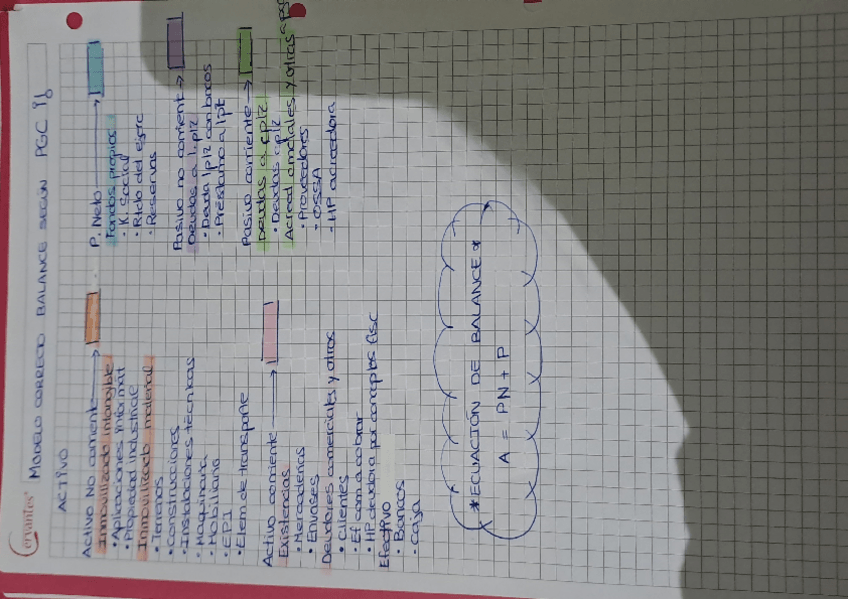 Cervantes
MODELO CORRECTO BALANCE SEGÚN PGC
ACTIVO
Activo No corriente
Inmovilizado intangible
• Aplicaciones informat
• Propiedad industrial
Inmovilizado material
• Terrenos
• Construcciones
• Instalaciones técnicas
• Maquinaria
• Mobiliario
• EPI
• Elem de transporte
Activo corriente
Existencias
• Mercaderías
• Envases
Deudores comerciales y otros
• Clientes
• Ef com a cobrar
• HP deudora por conceptos fisc
Efectivo
• Bancos
• Caja
P. Neto
Fondos propios
• K. Social
• Rtdo del ejerc
• Reservas
Pasivo no corrient
Deudas a l.plz
• Deuda lplz con bancos
• Préstamo a lpt
Pasivo corriente
Deudas a cplz
• Deudas cplz
Acreed comerciales y otras
• Proveedores
• OSSA
• HP acreedora
* ECUACIÓN DE BALANCE *
A = PN + P